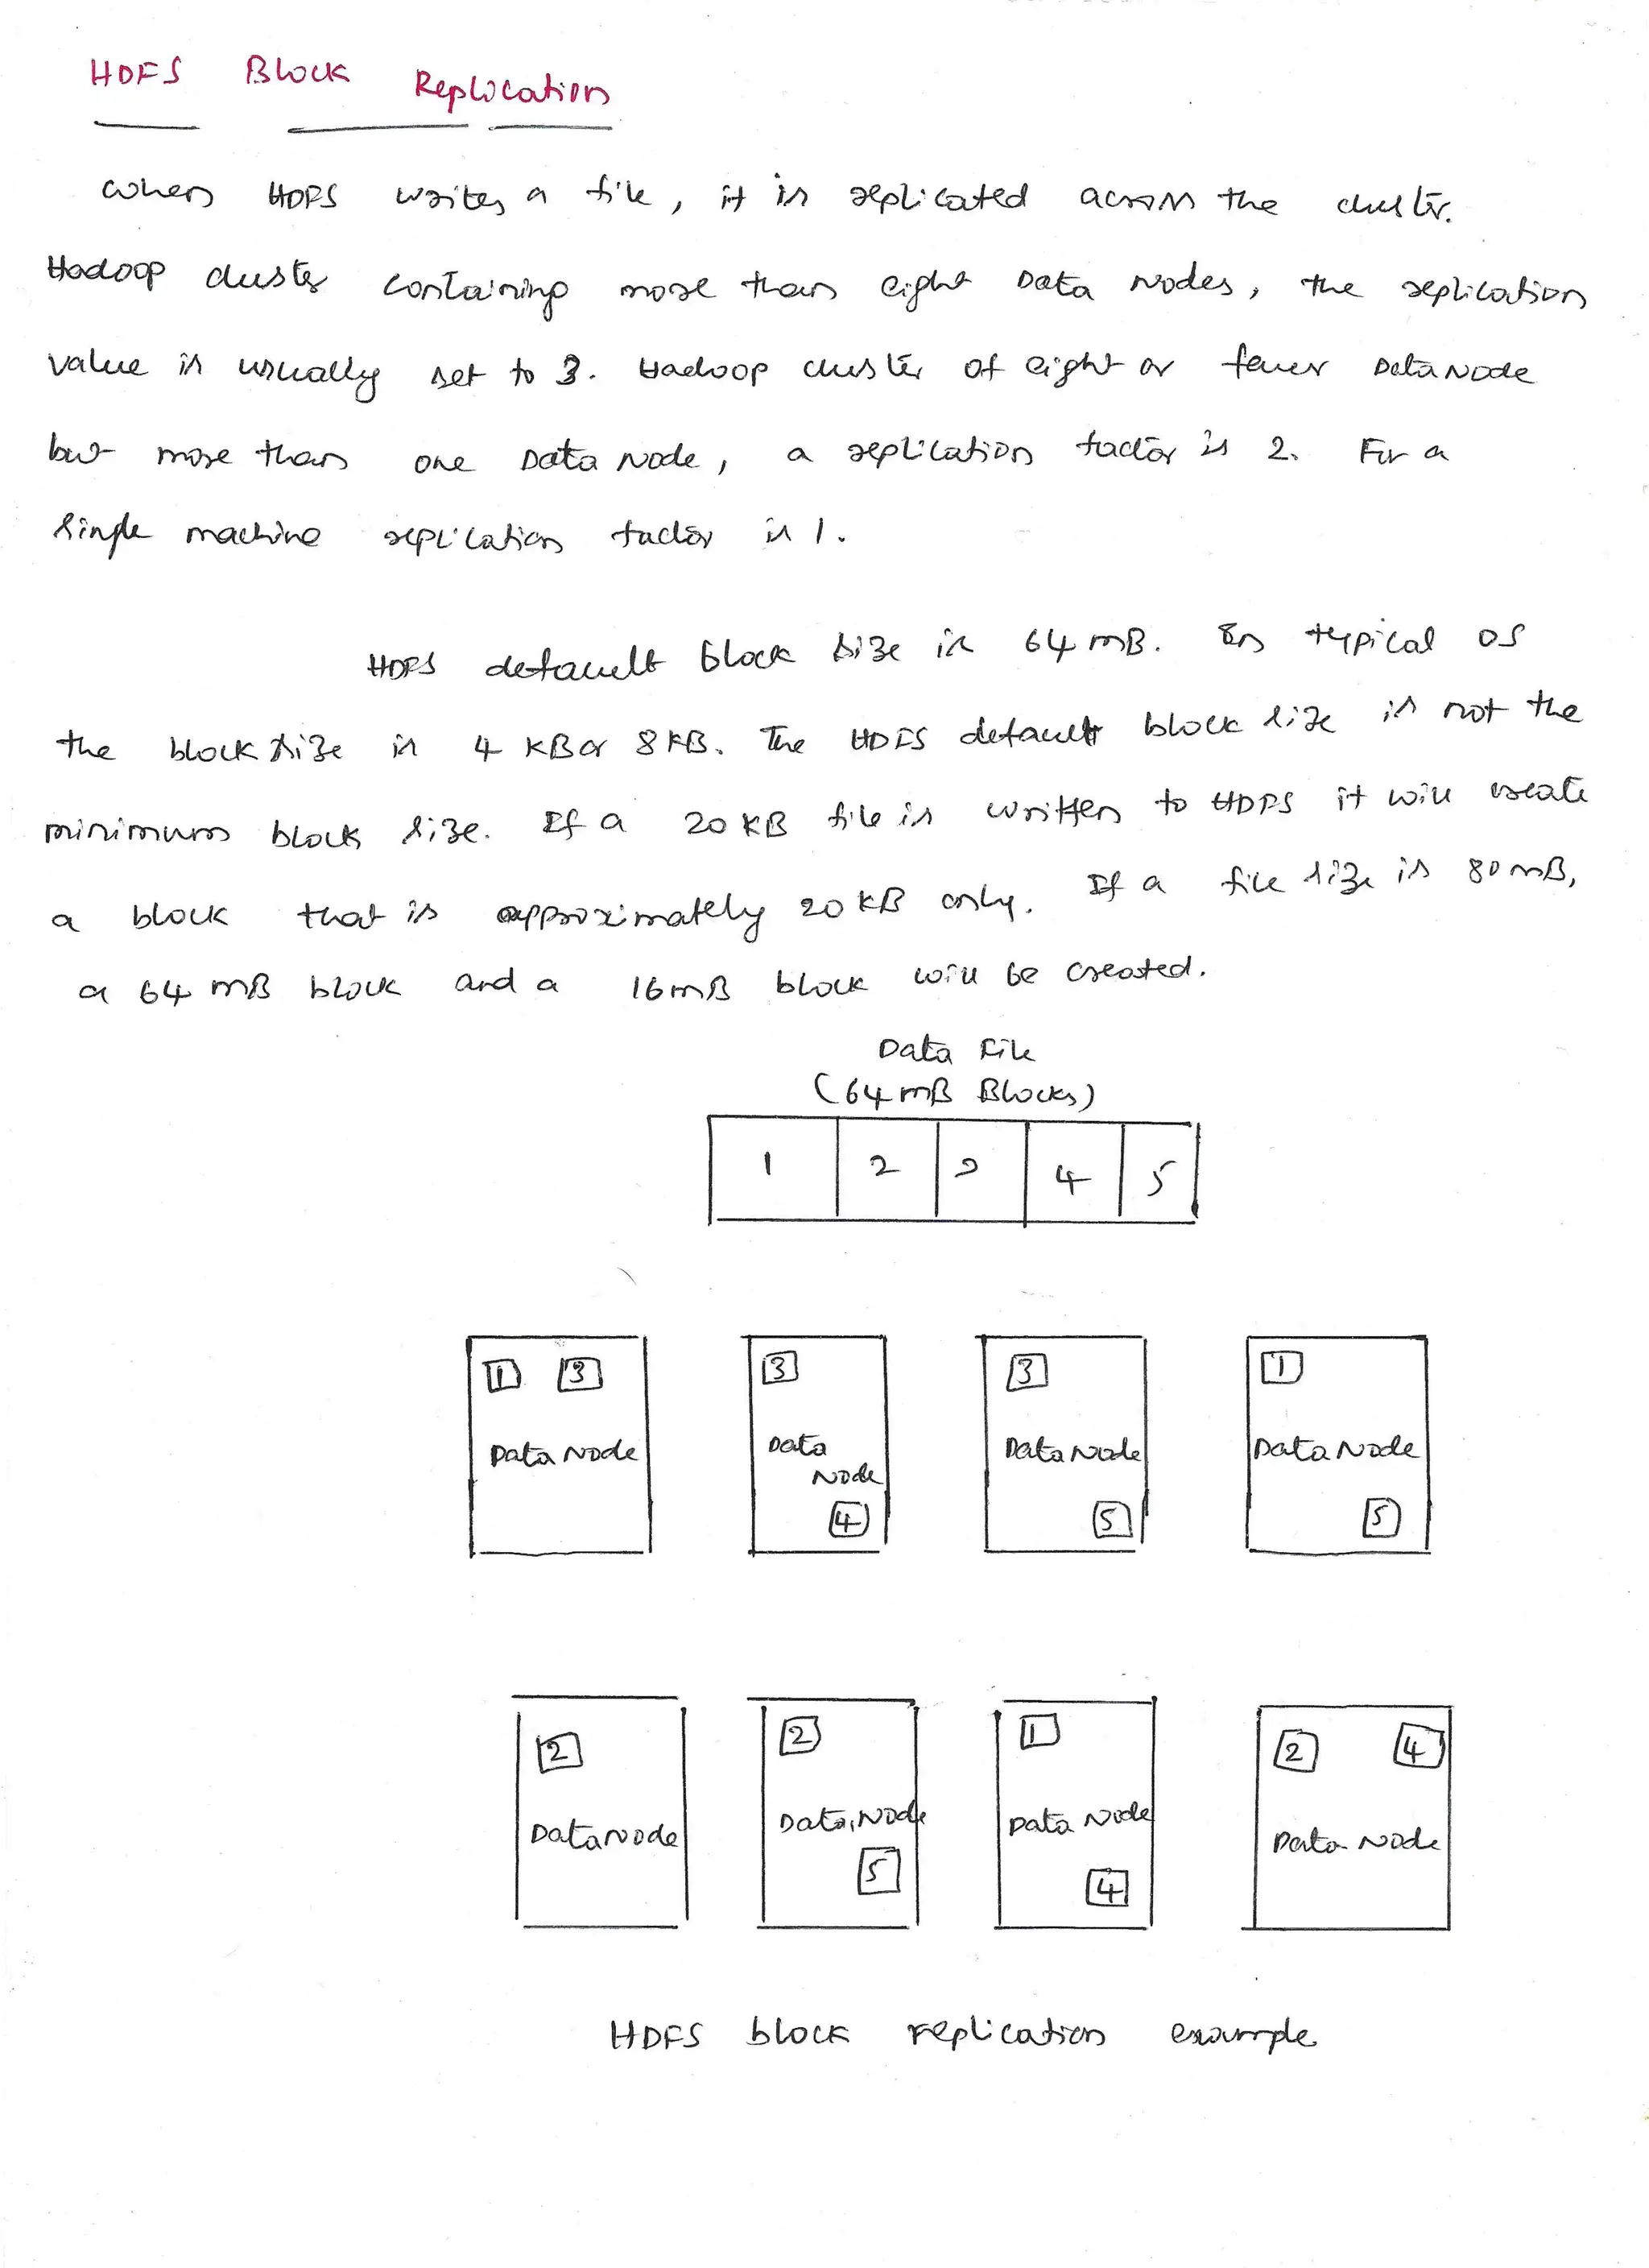 HDFS Block Replication
When HDFS writes a file, it is replicated across the cluster.
Hadoop cluster containing more than eight Data Nodes, the replication
value is usually set to 3. Hadoop cluster of eight or fewer DataNode
but more than one Data Node, a replication factor is 2. For a
single machine replication factor is 1.
HDFS default block size is 64 MB. In typical OS
the block size is 4 KB or 8 KB. The HDFS default block size is not the
minimum block size. If a 20 KB file is written to HDFS it will create
a block that is approximately 20 KB only. If a file size is 80 MB,
a 64 MB block and a 16 MB block will be created.
Data File
(64 MB Blocks)
1 2 3 4 5
1 3 3 3 1
Data Node Data Node Data Node Data Node
4 5 5
2 2 1 2 4
DataNode Data Node Data Node Data Node
5 4
HDFS block replication example